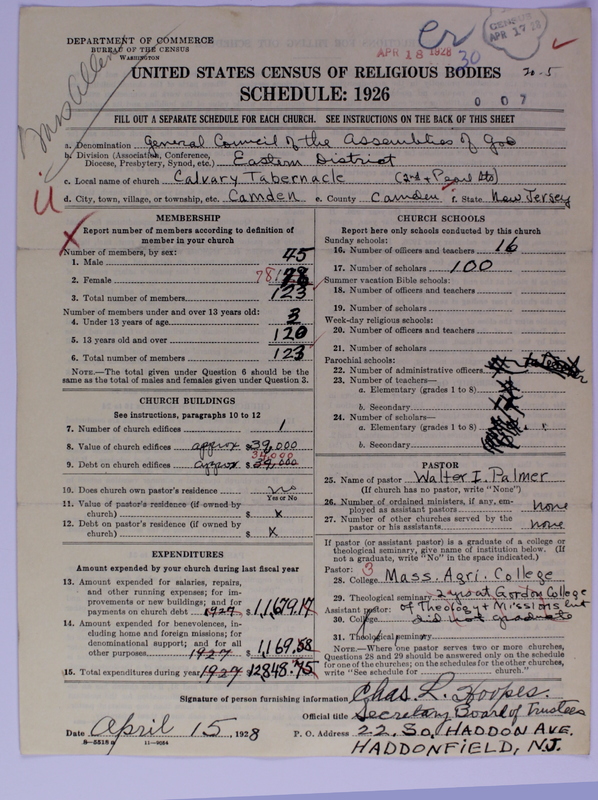 DEPARTMENT OF COMMERCE
BUREAU OF THE CENSUS
WASHINGTON
APR 18 1928
CENSUS
APR 17 28
30
UNITED STATES CENSUS OF RELIGIOUS BODIES
20-5
SCHEDULE: 1926
0 0 7
FILL OUT A SEPARATE SCHEDULE FOR EACH CHURCH. SEE INSTRUCTIONS ON THE BACK OF THIS SHEET
a. Denomination General Council of the Assemblies of God
b. Division (Association, Conference, Diocese, Presbytery, Synod, etc.) Eastern District
c. Local name of church Calvary Tabernacle (2nd + Pearl Sts)
d. City, town, village, or township, etc. Camden e. County Camden f. State New Jersey
MEMBERSHIP
Report number of members according to definition of
member in your church
Number of members, by sex:
1. Male 45
2. Female 78
3. Total number of members 123
Number of members under and over 13 years old:
4. Under 13 years of age 3
5. 13 years old and over 120
6. Total number of members 123
NOTE.—The total given under Question 6 should be
same as the total of males and females given under Question 3.
CHURCH BUILDINGS
See instructions, paragraphs 10 to 12
7. Number of church edifices 1
8. Value of church edifices approx $39,000
9. Debt on church edifices approx $
10. Does church own pastor's residence no
Yes or No
11. Value of pastor's residence (if owned by
church) $ x
12. Debt on pastor's residence (if owned by
church) $ x
EXPENDITURES
Amount expended by your church during last fiscal year
13. Amount expended for salaries, repairs,
and other running expenses; for im-
provements or new buildings; and for
payments on church debt 1927 $11,679.17
14. Amount expended for benevolences, in-
cluding home and foreign missions; for
denominational support; and for all
other purposes 1927 1,169.58
15. Total expenditures during year 1927 12848.75
CHURCH SCHOOLS
Report here only schools conducted by this church
Sunday schools:
16. Number of officers and teachers 16
17. Number of scholars 100
Summer vacation Bible schools:
18. Number of officers and teachers
19. Number of scholars
Week-day religious schools:
20. Number of officers and teachers
21. Number of scholars
Parochial schools:
22. Number of administrative officers
23. Number of teachers—
a. Elementary (grades 1 to 8)
b. Secondary
24. Number of scholars—
a. Elementary (grades 1 to 8)
b. Secondary
PASTOR
25. Name of pastor Walter I. Palmer
(If church has no pastor, write "None")
26. Number of ordained ministers, if any, em-
ployed as assistant pastors none
27. Number of other churches served by the
pastor or his assistants none
If pastor (or assistant pastor) is a graduate of a college or
theological seminary, give name of institution below. (If
not a graduate, write "No" in the space indicated.)
Pastor: 3
28. College Mass. Agri. College
29. Theological seminary 2 yrs at Gordon College
Assistant pastor: of Theology + Missions but
30. College did not graduate
31. Theological seminary
NOTE.—Where one pastor serves two or more churches,
Questions 28 and 29 should be answered only on the schedule
for one of the churches; on the schedules for the other churches,
write "See schedule for church."
Signature of person furnishing information Chas. L. Hoopes.
Official title Secretary Board of Trustees
Date April 15, 1928 P. O. Address 22, So, HADDON AVE.
8-5518a 11-9084 HADDONFIELD, N.J.